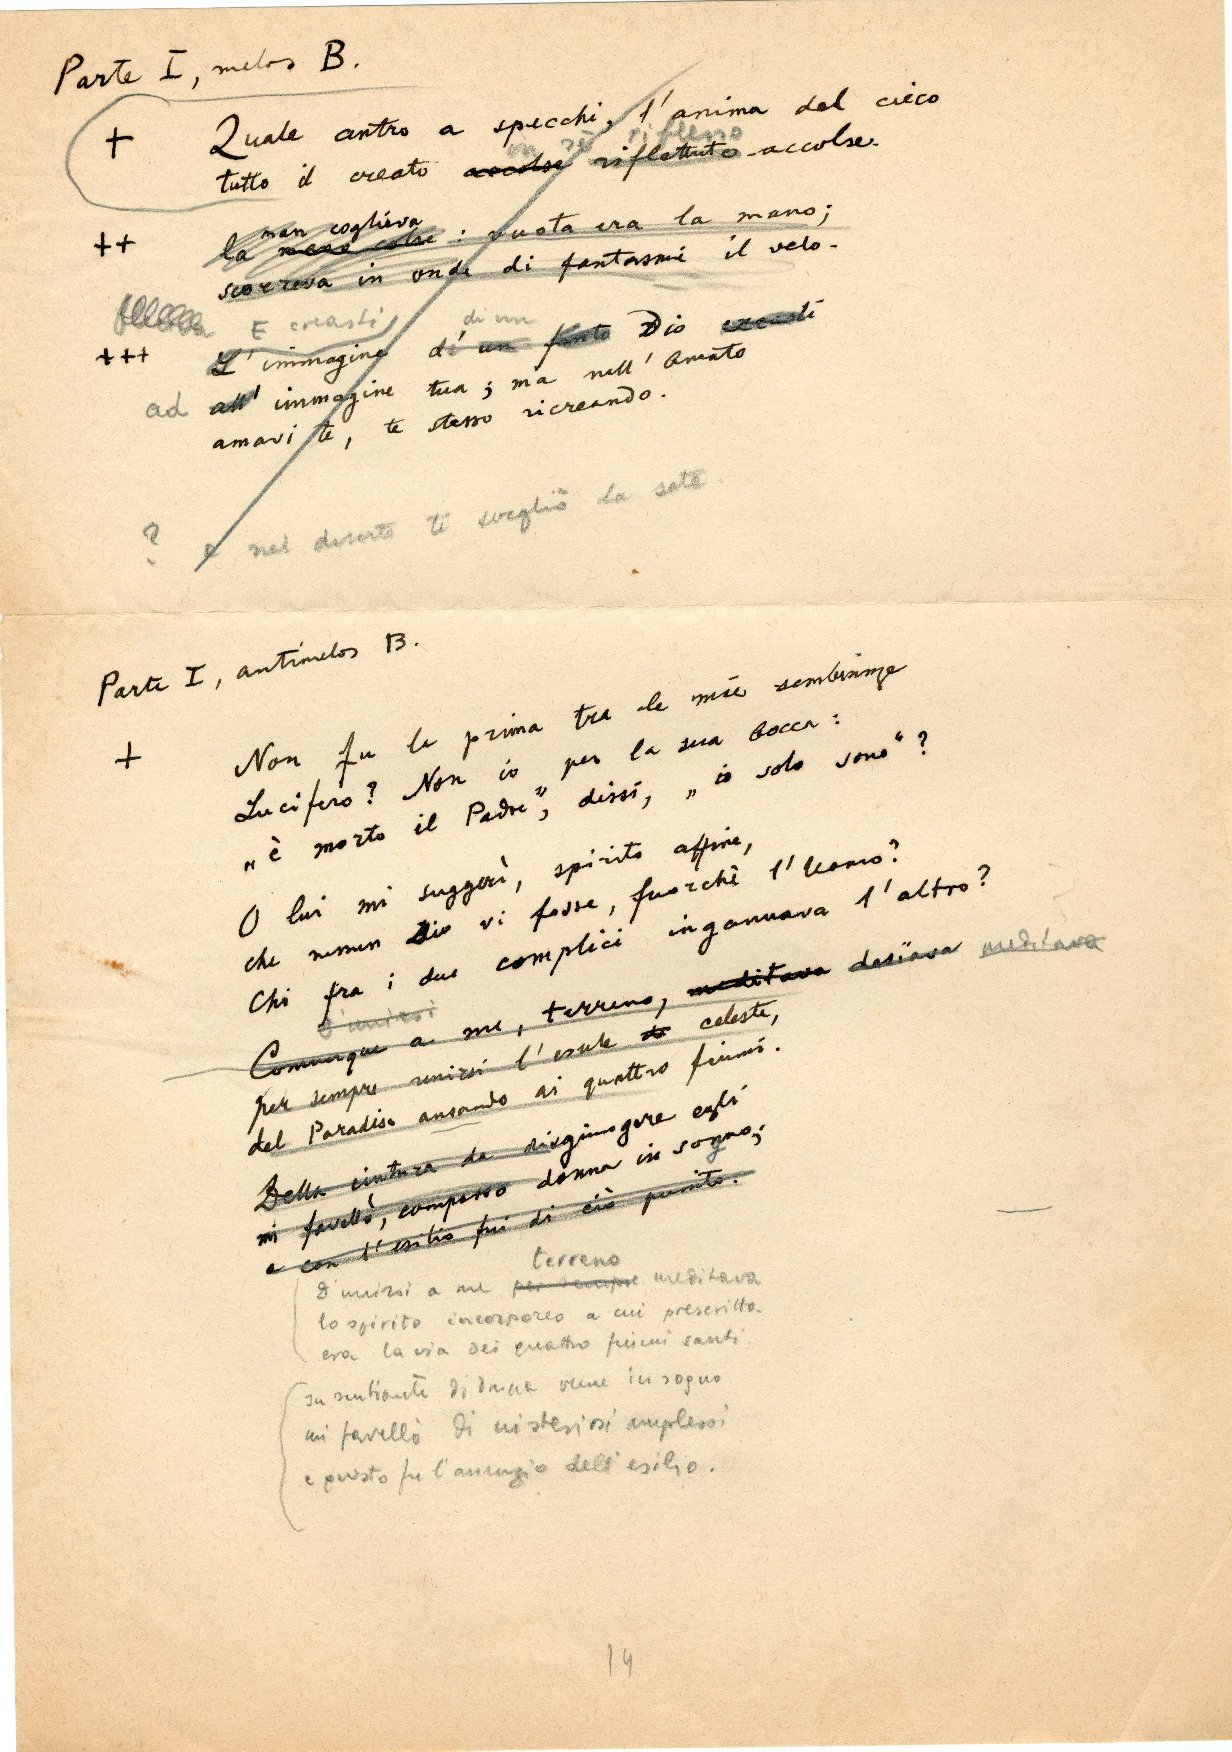 Parte I, melos B.
+ Quale antro a specchi, l'anima del cieco
in sé riflesso
tutto il creato accolse riflettuto accolse.
man coglieva
++ la mano colse : vuota era la mano;
scorreva in onde di fantasmi il velo.
E creasti di un
+++ L'immagine d'un finto Dio creasti
ad all'immagine tua; ma nell'Amato
amavi te, te stesso ricreando.
? e nel deserto ti svegliò la sete.
Parte I, antimelos B.
+ Non fu la prima tra le mie sembianze
Lucifero? Non io per la sua bocca:
„è morto il Padre", dissi, „io solo sono"?
O lui mi suggerì, spirito affine,
che nessun Dio vi fosse, fuorchè l'Uomo?
Chi fra i due complici ingannava l'altro?
D'unirsi
Comunque a me, terreno, meditava desïava meditava
per sempre unirsi l'esule celeste,
del Paradiso ansando ai quattro fiumi.
Della cintura da disgiungere egli
mi favellò, comparso donna in sogno;
e con l'esilio fui di ciò punito.
terreno
D'unirsi a me per sempre meditava
lo spirito incorporeo a cui prescritta
era la via dei quattro fiumi santi
In sembiante di donna venne in sogno
mi favellò di misteriosi amplessi
e questo fu l'annunzio dell'esilio.
14